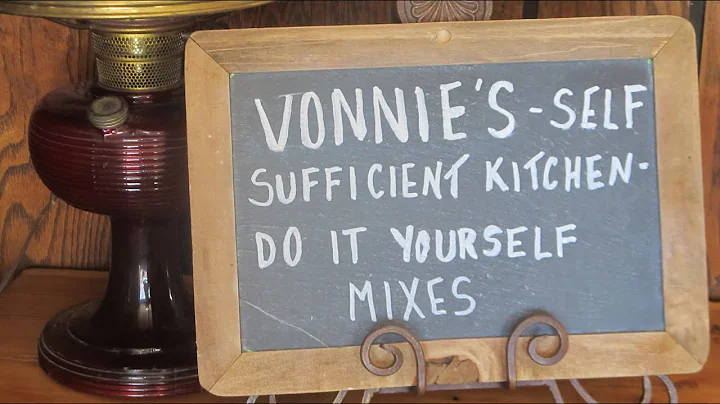 VONNIE'S - SELF
SUFFICIENT KITCHEN -
DO IT YOURSELF
MIXES